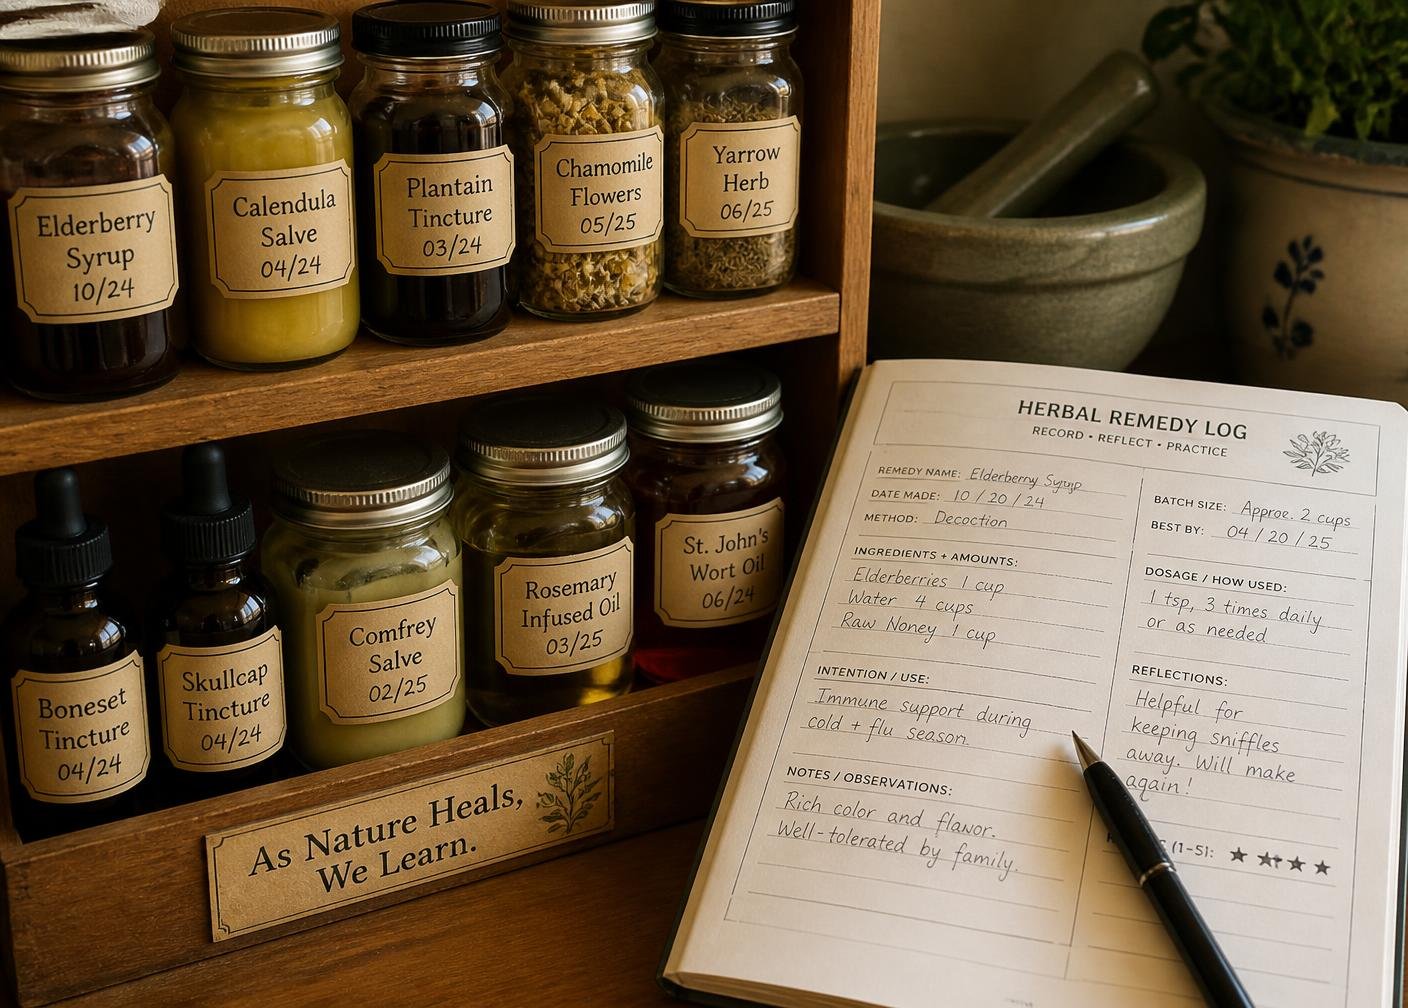 Elderberry
Syrup
10/24
Calendula
Salve
04/24
Plantain
Tincture
03/24
Chamomile
Flowers
05/25
Yarrow
Herb
06/25
Boneset
Tincture
04/24
Skullcap
Tincture
04/24
Comfrey
Salve
02/25
Rosemary
Infused Oil
03/25
St. John's
Wort Oil
06/24
As Nature Heals,
We Learn.
HERBAL REMEDY LOG
RECORD • REFLECT • PRACTICE
REMEDY NAME: Elderberry Syrup
DATE MADE: 10 / 20 / 24
METHOD: Decoction
INGREDIENTS + AMOUNTS:
Elderberries 1 cup
Water 4 cups
Raw Noney 1 cup
INTENTION / USE:
Immune support during
cold + flu season.
NOTES / OBSERVATIONS:
Rich color and flavor.
Well-tolerated by family.
BATCH SIZE: Approe. 2 cups
BEST BY: 04 / 20 / 25
DOSAGE / HOW USED:
1 tsp, 3 times daily
or as needed
REFLECTIONS:
Helpful for
keeping sniffles
away. Will make
again!
(1-5): ★ ★ ★ ★